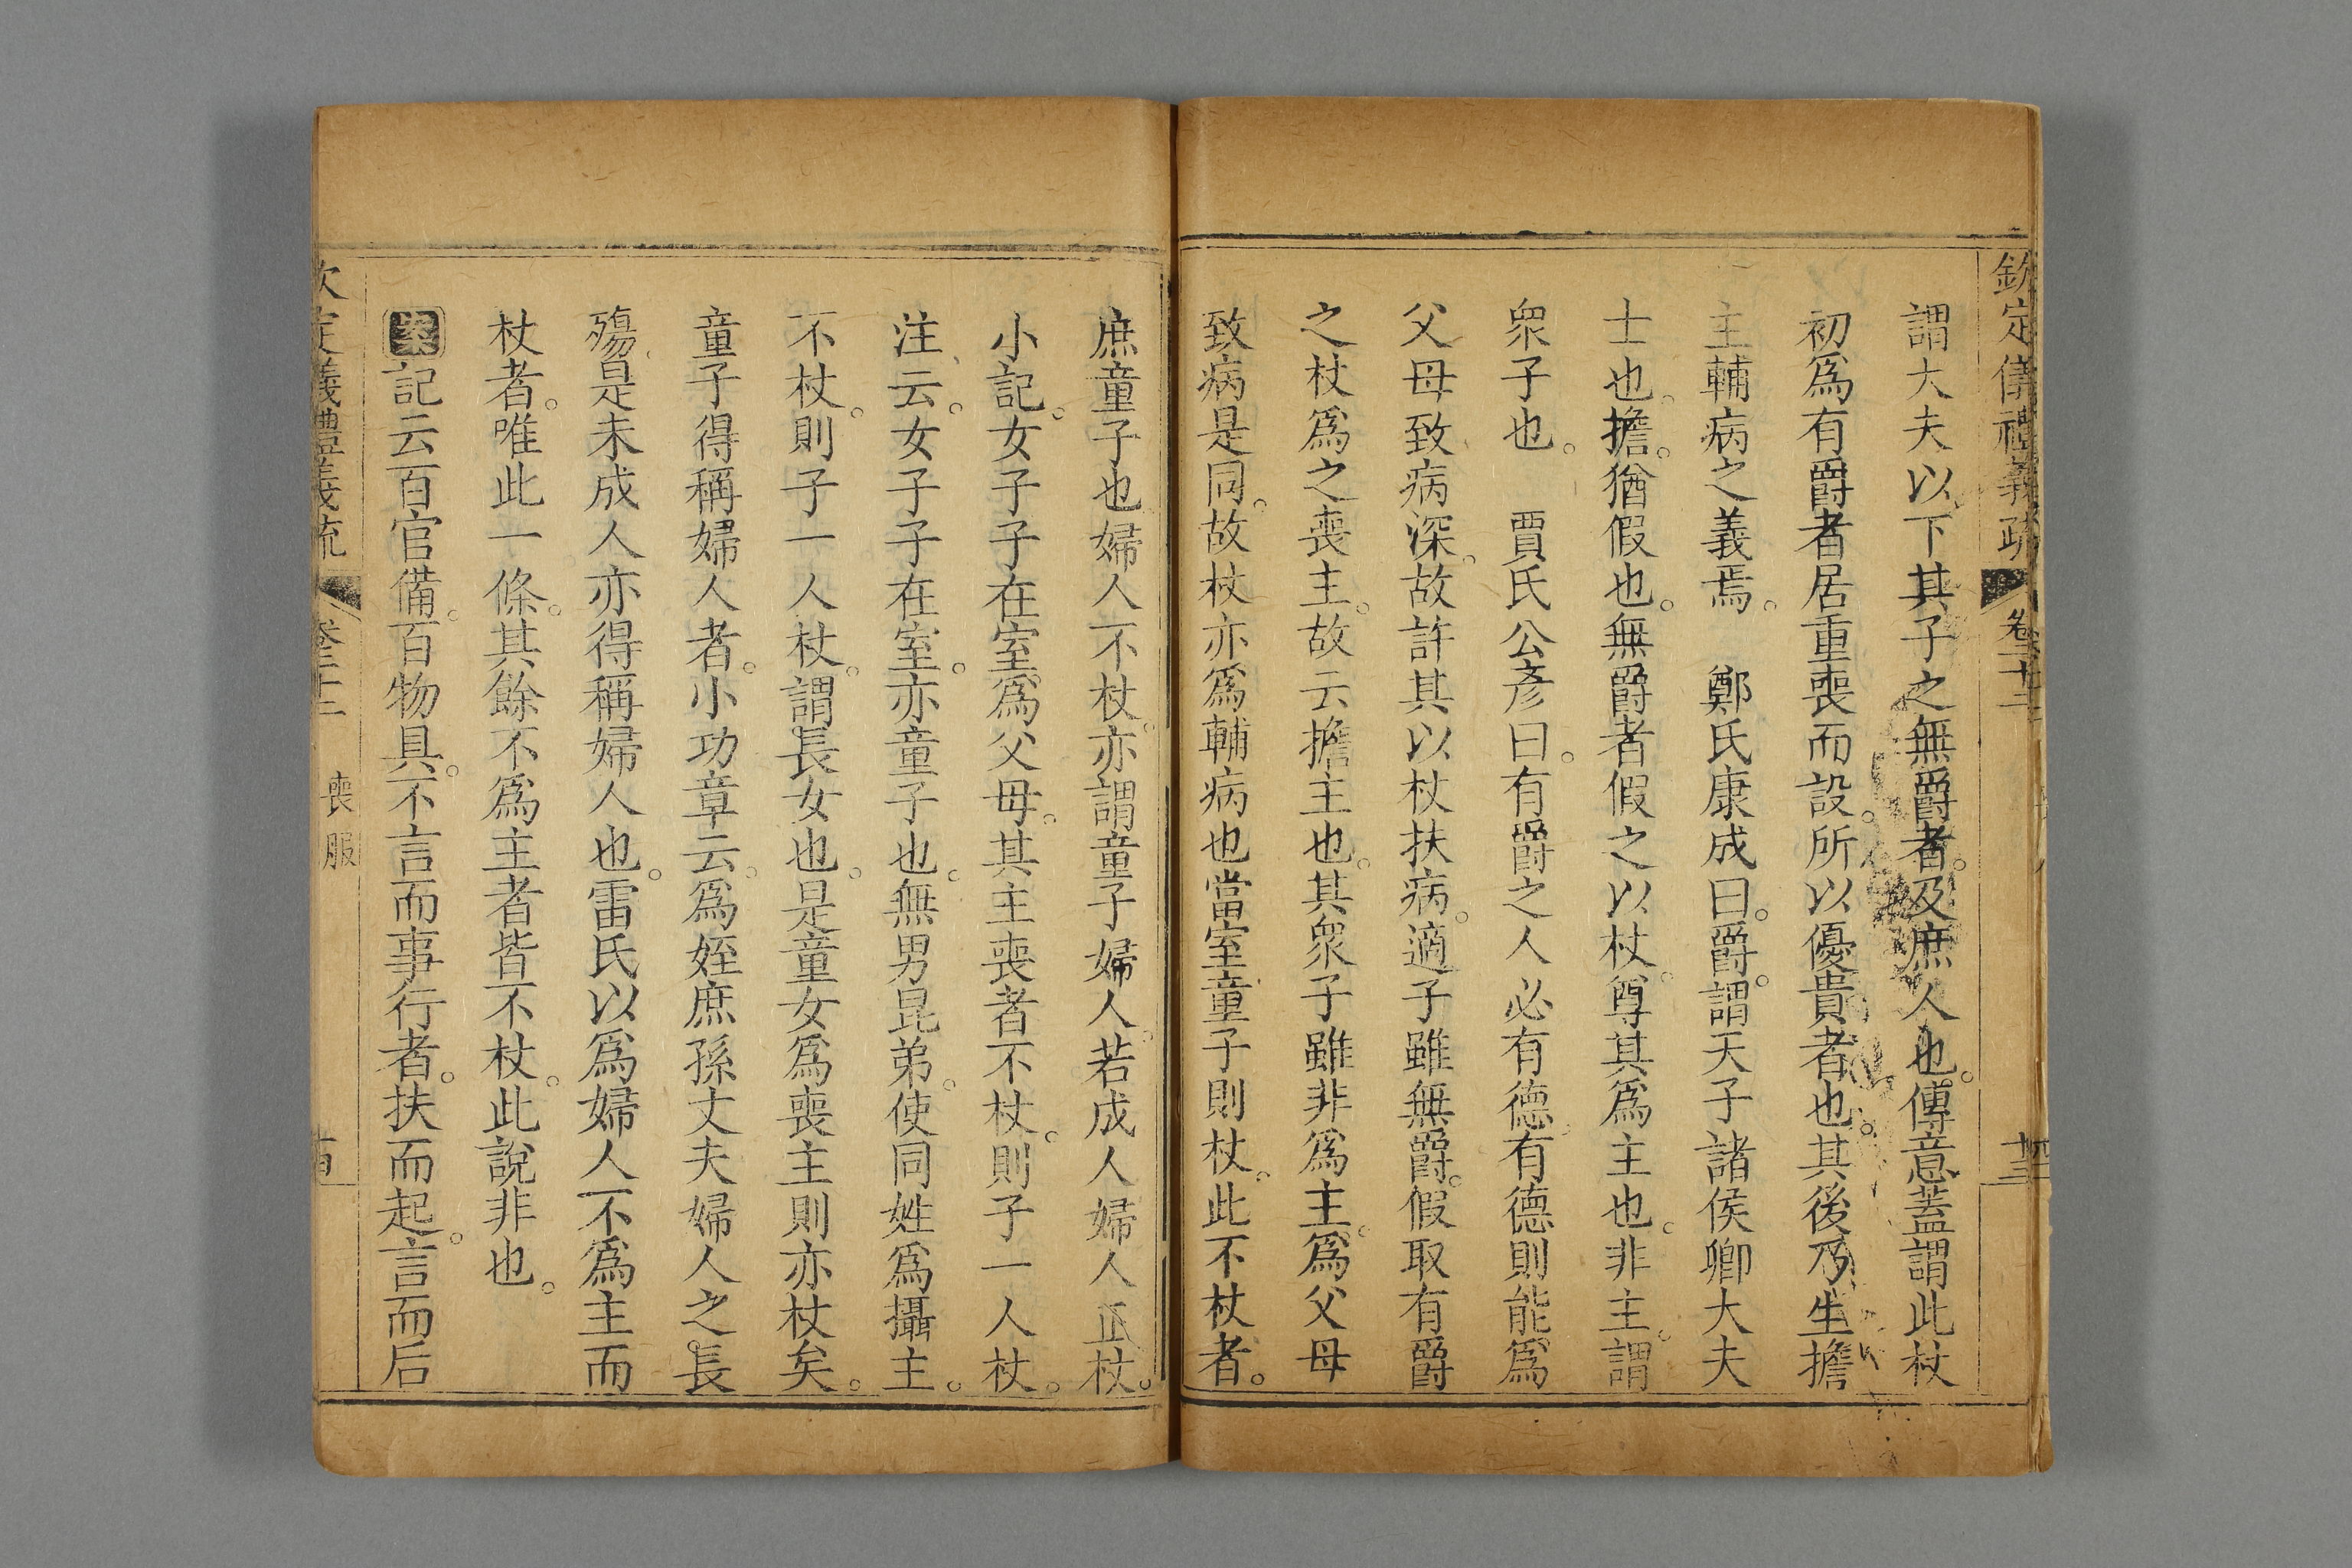 欽定儀禮義疏 卷二十二 十三
謂大夫以下其子之無爵者。及庶人也。傳意蓋謂此杖
初爲有爵者居重喪而設。所以優貴者也。其後乃生擔
主輔病之義焉。 鄭氏康成曰。爵。謂天子諸侯卿大夫
士也。擔。猶假也。無爵者假之以杖。尊其爲主也。非主。謂
衆子也。 賈氏公彥曰。有爵之人必有德。有德則能爲
父母致病深。故許其以杖扶病。適子雖無爵。假取有爵
之杖爲之喪主。故云擔主也。其衆子雖非爲主。爲父母
致病是同。故杖亦爲輔病也當室童子則杖。此不杖者。
庶童子也婦人不杖。亦謂童子婦人。若成人婦人正杖。
小記。女子子在室。爲父母。其主喪者不杖。則子一人杖。
注云。女子子在室。亦童子也。無男昆弟。使同姓爲攝主。
不杖。則子一人杖。謂長女也。是童女爲喪主則亦杖矣。
童子得稱婦人者。小功章云。爲姪庶孫丈夫婦人之長
殤。是未成人亦得稱婦人也。雷氏以爲婦人不爲主而
杖者。唯此一條。其餘不爲主者皆不杖。此說非也。
案記云百官備。百物具。不言而事行者。扶而起。言而后
欽定儀禮義疏 卷二十二 喪服